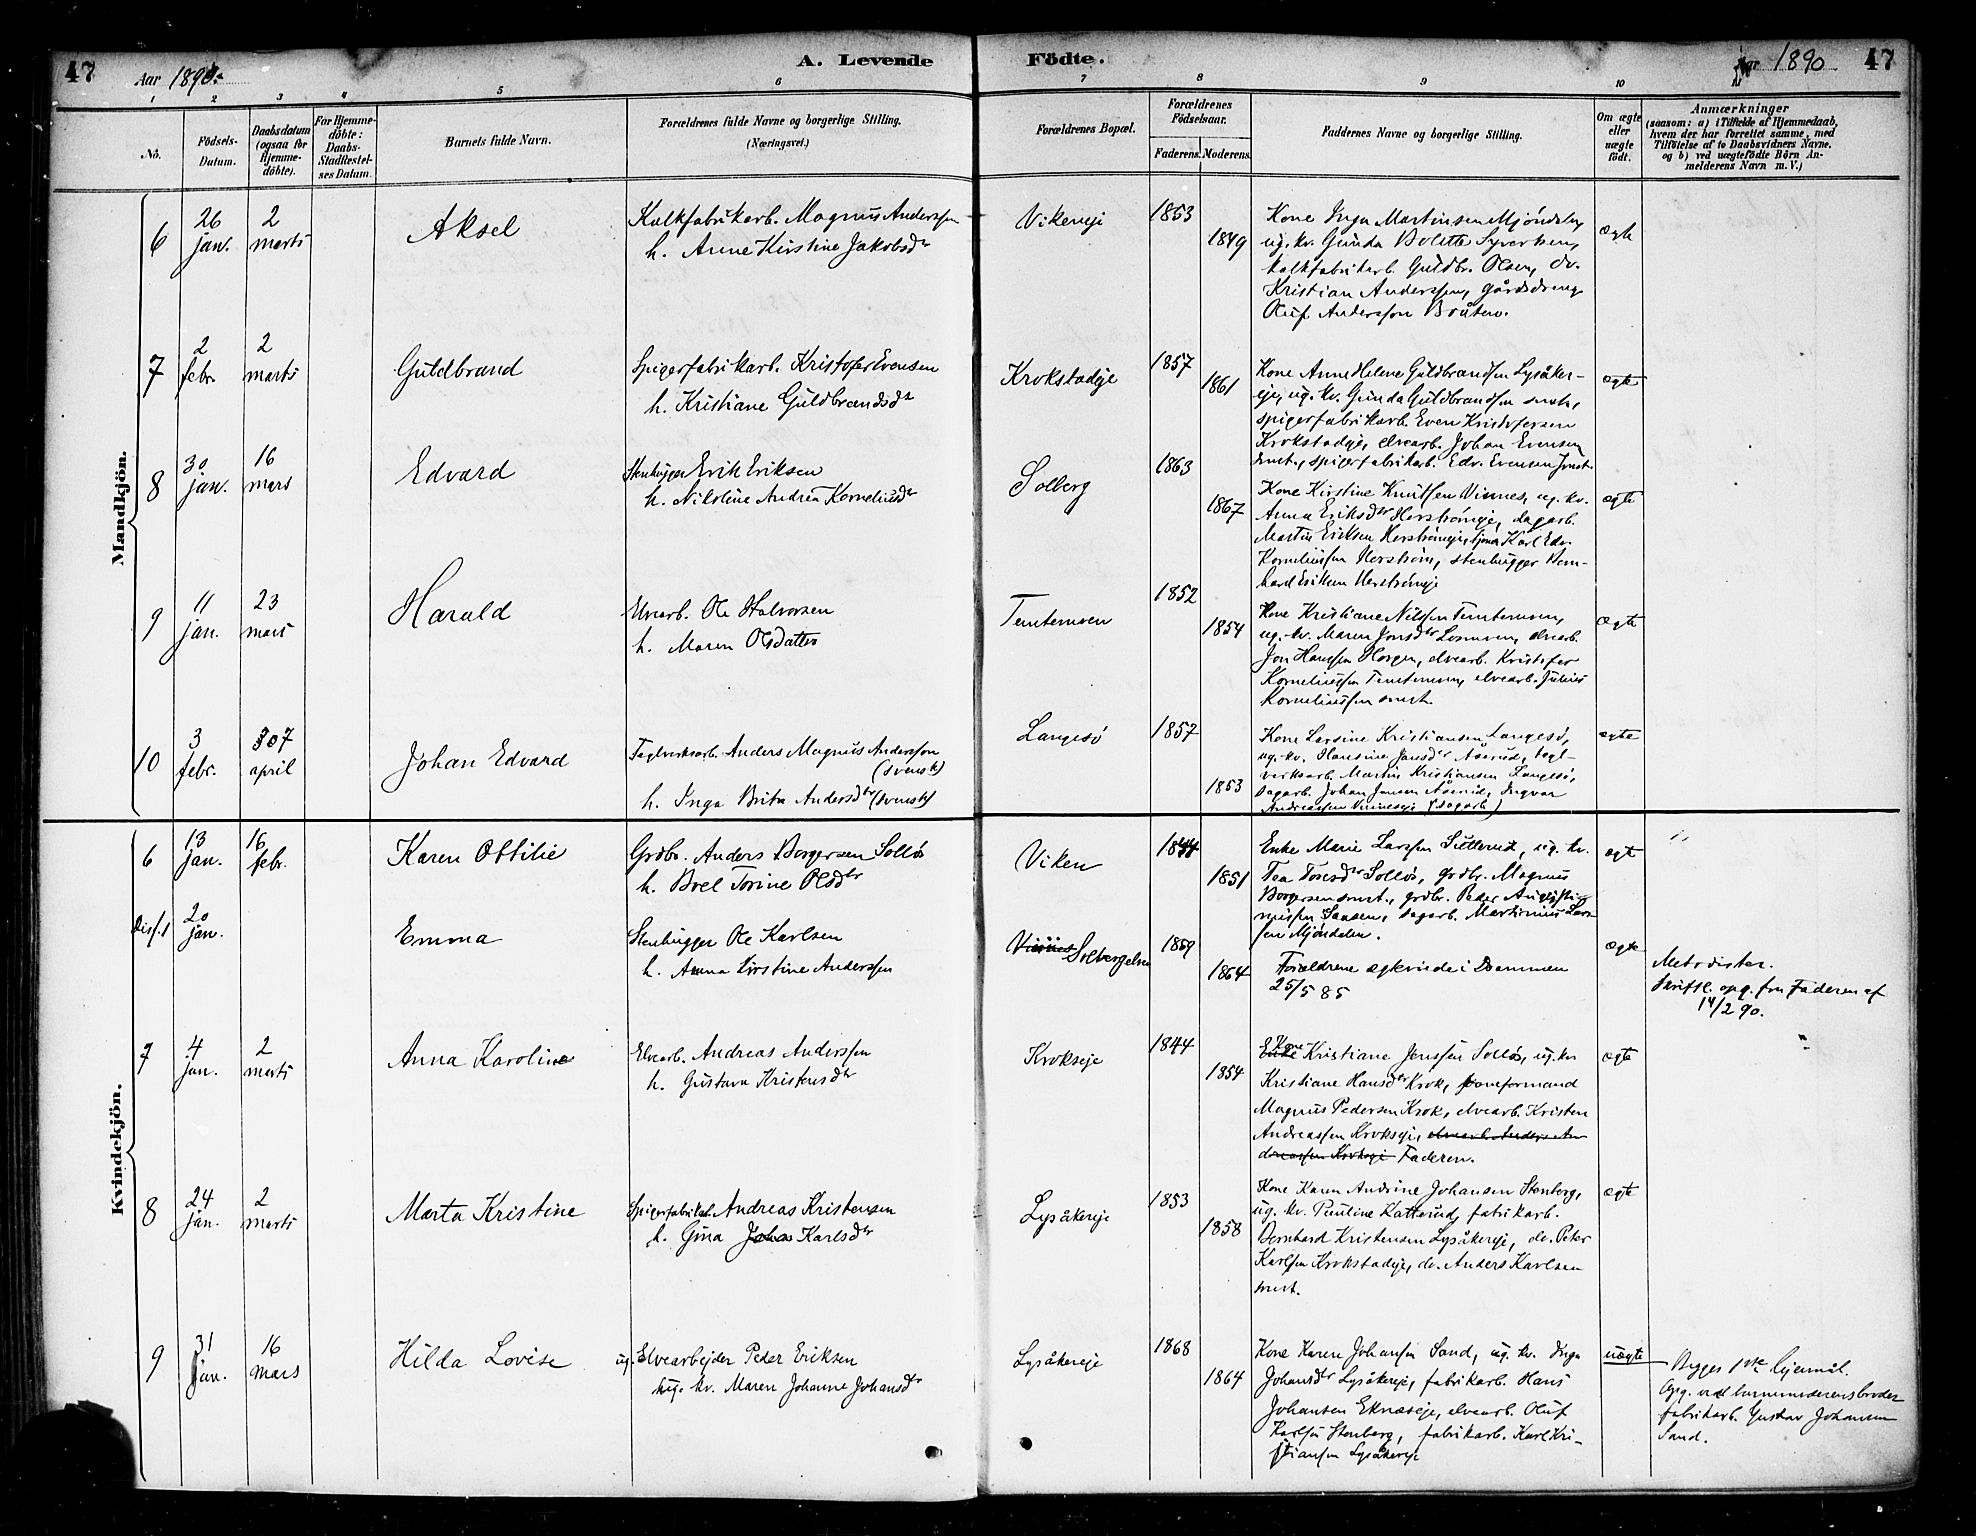 47
Aar 1890.
A. Levende
Födte.
Aar 1890
47
1 2 3 4 5 6 7 8 9 10
No.
Födsels-
Datum.
Daabsdatum
(ogsaa for
Hjemme-
döbte).
For Hjemme-
döbte:
Daabs-
Stadfæstel-
ses Datum.
Barnets fulde Navn.
Forældrenes fulde Navne og borgerlige Stilling.
(Næringsvei.)
Forældrenes Bopæl.
Forældrenes
Födselsaar.
Faderens.
Moderens.
Faddernes Navne og borgerlige Stilling.
Om ægte
eller
uægte
födt.
Anmærkninger
(saasom: a) i Tilfælde af Hjemmedaab,
hvem der har forrettet samme, med
Tilföielse af to Daabsvidners Navne,
og b) ved uægtefödte Börn An-
melderens Navn m. V.)
Mandkjön.
6
26
jan.
2
marts
Aksel
Kalkfabrikarb. Magnus Anderssen
h. Anne Kirstine Jakobsdtr
Vikereje
1853
1849
Kone Inga Martinsen Mjöndalen,
ug. kv. Gunda Bolette Syversen,
kalkfabrikarb. Guldbr. Olsen, do.
Kristian Anderssen, gårdsdreng
Oluf Anderssen Bråten.
ægte
7
2
febr.
2
marts
Guldbrand
Spigerfabrikarb. Kristofer Evensen
h. Kristiane Guldbrandsdtr
Krokstadeje
1857
1861
Kone Anne Helene Guldbrandsen Lysåker-
eje, ug. kv. Gunda Guldbrandsen smst.,
spigerfabrikarb. Even Kristofersen
Krokstadeje, elvearb. Johan Evensen
smst., spigerfabrikarb. Edv. Evensen smst.
ægte
8
30
jan.
16
mars
Edvard
Stenhugger Erik Eriksen
h. Nikoline Andrea Korneliusdtr
Solberg
1863
1867
Kone Kirstine Knutsen Vinnes, ug. kv.
Anna Eriksdtr Herströmeje, dagarb.
Martin Eriksen Herströmeje, Karl Edv.
Korneliussen Herström, stenhugger Bern-
hard Eriksen Herströmeje
ægte
9
11
jan.
23
mars
Harald
Elvearb. Ole Halvorsen
h. Maren Olsdatter
Temtemoen
1852
1854
Kone Kristiane Nilssen Temtemoen,
ug. kv. Maren Jonsdtr, elvearb.
Jon Hanssen Horgen, elvearb. Kristofer
Korneliussen Temtemoen, elvearb. Julius
Korneliussen smst.
ægte
10
3
febr.
7
april
Johan Edvard
Teglverksarb. Anders Magnus Anderssen
(svensk)
h. Inga Brita Andersdtr (svensk)
Langesö
1857
1853
Kone Larsine Kristiansen Langesö,
ug. kv. Hansine Jansdtr Åserud, tegl-
verksarb. Martin Kristiansen Langesö,
dagarb. Johan Jansen Åserud, Ingvar
Andreassen Vinneseje (dagarb.)
ægte
Kvindekjön.
6
13
jan.
16
febr.
Karen Ottilie
Grdbr. Anders Borgersen Solløs
h. Brel Torine Olsdtr
Viken
1844
1851
Enke Marie Larssen Sutterud, ug. kv.
Tea Toresdtr Solløs, grdbr. Magnus
Borgersen smst., grdbr. Peder Augusti-
nussen Sansen, dagarb. Martinius Lars-
sen Mjöndalen.
ægte
Diss. 1
20
jan.
Emma
Stenhugger Ole Karlsen
h. Anna Kirstine Anderssen
Solbergelven
1859
1864
Forældrene ægteviede i Drammen
25/5 85
ægte
Metodister.
Skriftl. opg. fra Faderen af
14/2 90.
7
4
jan.
2
marts
Anna Karoline
Elvearb. Andreas Anderssen
h. Gustava Kristensdtr
Krokseje
1844
1854
Kone Kristiane Jenssen Solløs, ug. kv.
Kristiane Hansdtr Krok, formand
Magnus Pedersen Krok, elvearb. Kristen
Andreassen Krokseje, elvearb. Anders An-
dreassen Krokseje Faderen.
ægte
8
24
jan.
2
marts
Marta Kristine
Spigerfabrikarb. Andreas Kristensen
h. Gina Johas Karlsdtr
Lysåkereje
1853
1858
Kone Karen Andrine Johansen Stenberg,
ug. kv. Pauline Katterud, fabrikarb.
Bernhard Kristensen Lysåkereje, do. Peter
Karlsen Krokstadeje, do. Anders Karlsen
smst.
ægte
9
31
jan.
16
mars
Hilda Lovise
ug. Elvearbejder Peder Eriksen
ug. kv. Maren Johanne Johansdtr
Lysåkereje
1868
1864
Kone Karen Johansen Sand, ug. kv. Inga
Johansdtr Lysåkereje, fabrikarb. Hans
Johansen Eknæseje, elvearb. Oluf
Karlsen Stenberg, fabrikarb. Karl Kri-
stiansen Lysåkereje
uægte
Begges 1ste lejermål.
Opg. ved barnemoderens broder
fabrikarb. Gustav Johansen
Sand.